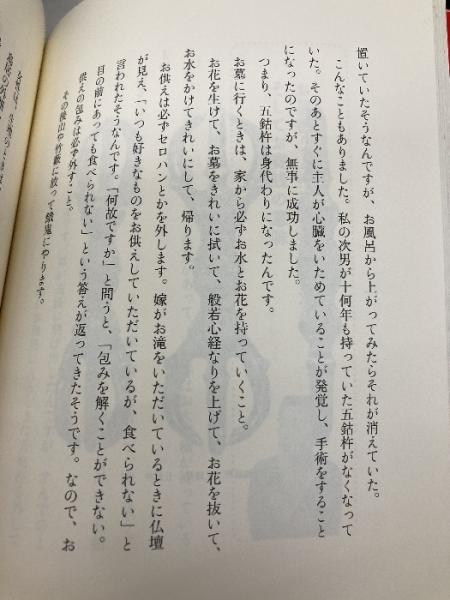 置いていたそうなんですが、お風呂から上がってみたらそれが消えていた。
こんなこともありました。私の次男が十何年も持っていた五鈷杵がなくなって
いた。そのあとすぐに主人が心臓をいためていることが発覚し、手術をすること
になったのですが、無事に成功しました。
つまり、五鈷杵は身代わりになったんです。
お墓に行くときは、家から必ずお水とお花を持っていくこと。
お花を生けて、お墓をきれいに拭いて、般若心経なりを上げて、お花を抜いて、
お水をかけてきれいにして、帰ります。
お供えは必ずセロハンとかを外します。嫁がお滝をいただいているときに仏壇
が見え、「いつも好きなものをお供えしていただいているが、食べられない」と
言われたそうなんです。「何故ですか」と問うと、「包みを解くことができない。
目の前にあっても食べられない」という答えが返ってきたそうです。なので、お
供えの包みは必ず外すこと。
その後山や竹藪に放って餓鬼にやります。